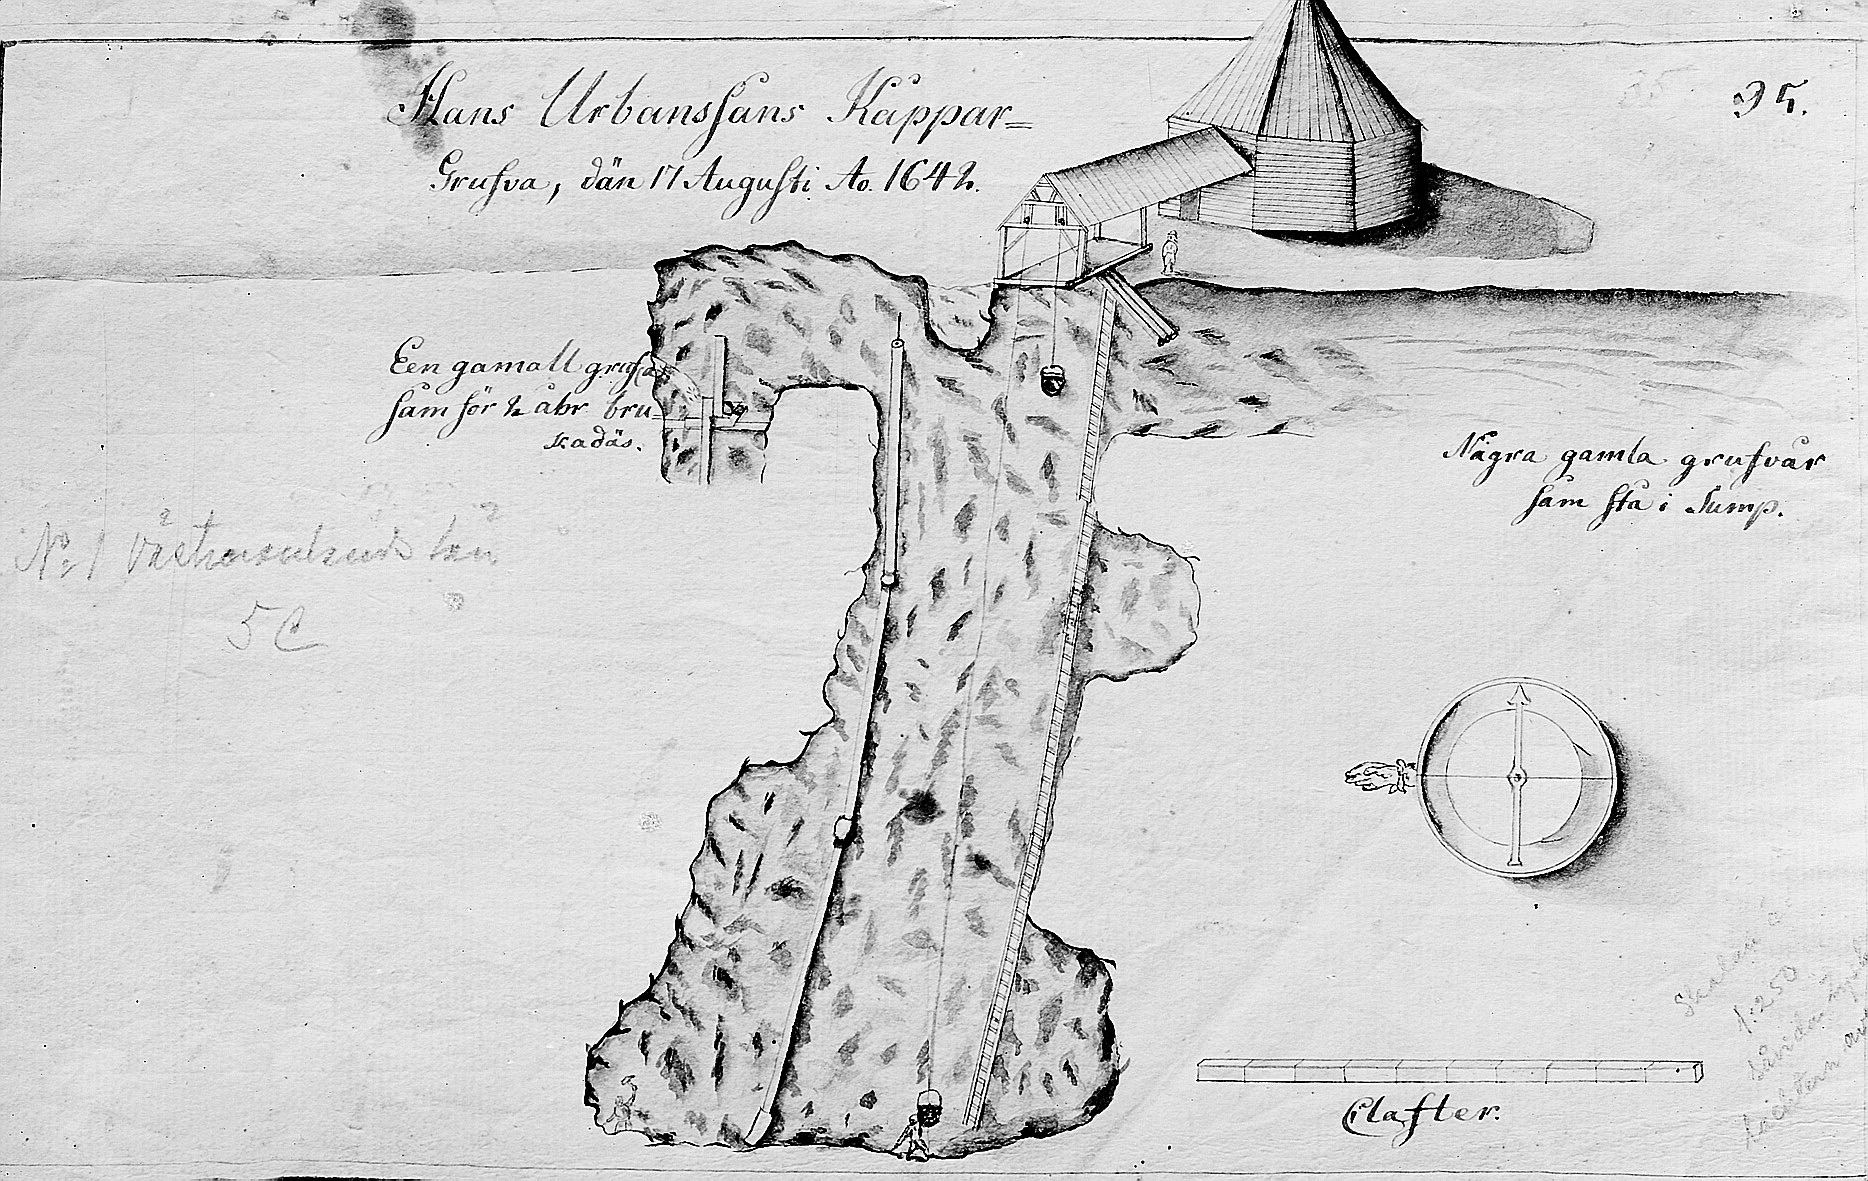 Hans Urbanssans Kåppar=
Grufva, dän 17 Augusti Ao. 1642.
95.
35
Een gamall grufva
sam för 2 åhr bru-
kadäs.
Några gamla grufvår
sam stå i Sump.
No 1 Västmanlands län
5 C
Clafter.
Skalan
1:250